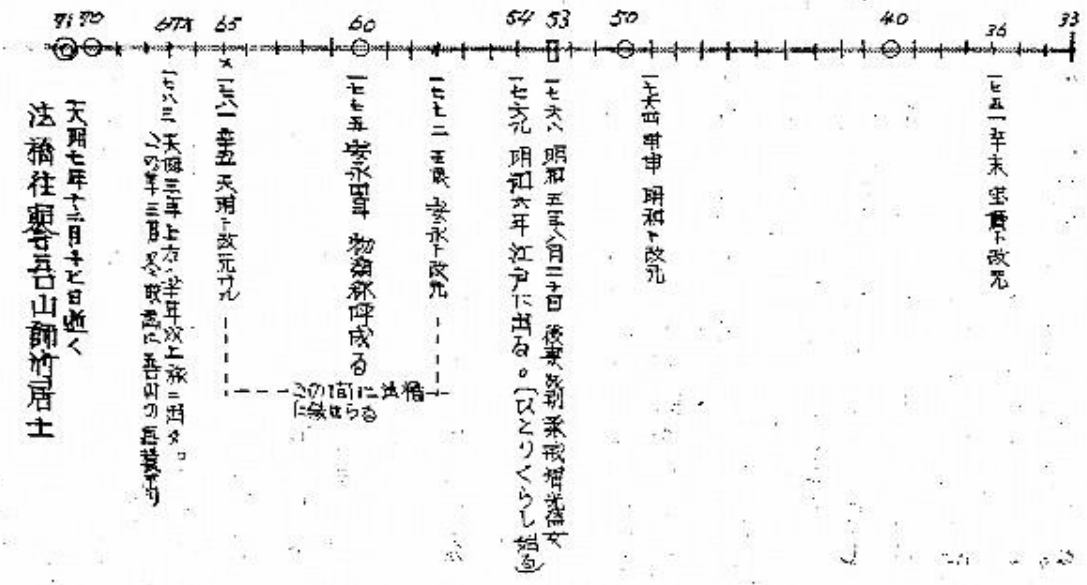 71 70 67才 65 60 54 53 50 40 36 33
一七五一辛未 宝暦ト改元
一七六四甲申 明和ト改元
一七六八 明和五年八月二十日 後妻没
一七六九 明和六年 江戸に出る。(ひとりくらし始る)
一七七二 壬辰 安永ト改元
一七七五 安永四年 物類称呼成る
この間に法橋
に叙せらる
一七八一辛丑 天明ト改元サル
一七八三 天明三年上方へ半年以上旅ニ出タ。
この年三月 吾山の
天明七年十二月十七日逝く
法橋往誉吾山師竹居士